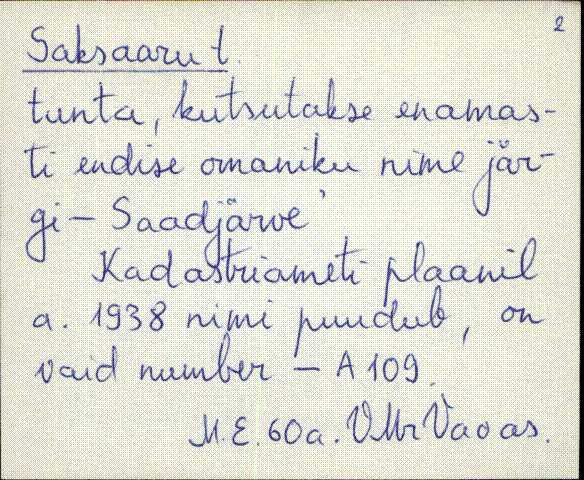 2
Saksaaru t.
tunta, kutsutakse enamas-
ti endise omaniku nime jär-
gi - Saadjärve'
Kadastriameti plaanil
a. 1938 nimi puudub, on
vaid number - A 109.
M. E. 60a.